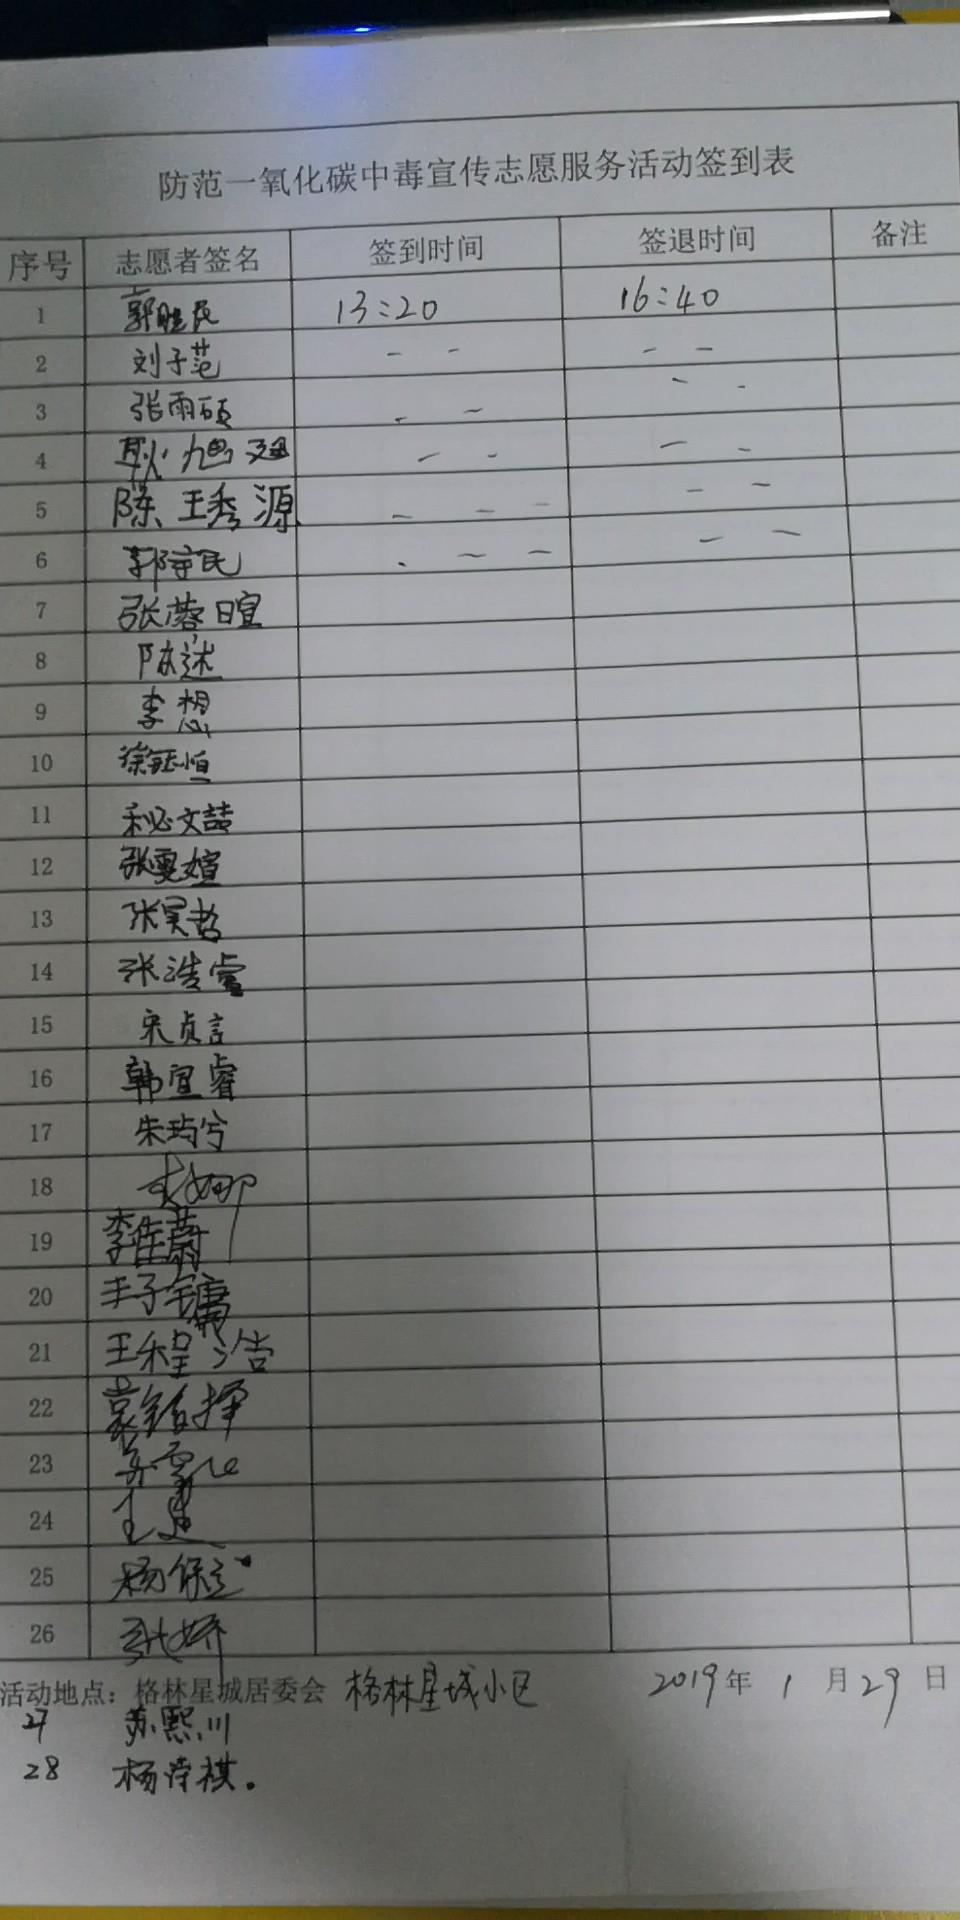 防范一氧化碳中毒宣传志愿服务活动签到表
序号 志愿者签名 签到时间 签退时间 备注
1 13:20 16:40
2 刘子范 - - - -
3 张雨硕 - - - -
4 耿旭 - - - -
5 陈王秀源 - - - - -
6 郭宇民 - - - -
7 张蓉暄
8 陈述
9 李想
10 徐钰恒
11 秘文喆
12 张雯媗
13 张昊哲
14 张浩睿
15 宋贞言
16 韩宜睿
17 朱玙兮
18 娜
19 李佳蔚
20 子镛
21 王程浩
22 袁铂择
23
24
25 杨
26 张娇
活动地点：格林星城居委会 格林星城小区 2019年1月29日
27 苏熙川
28 杨诗祺.